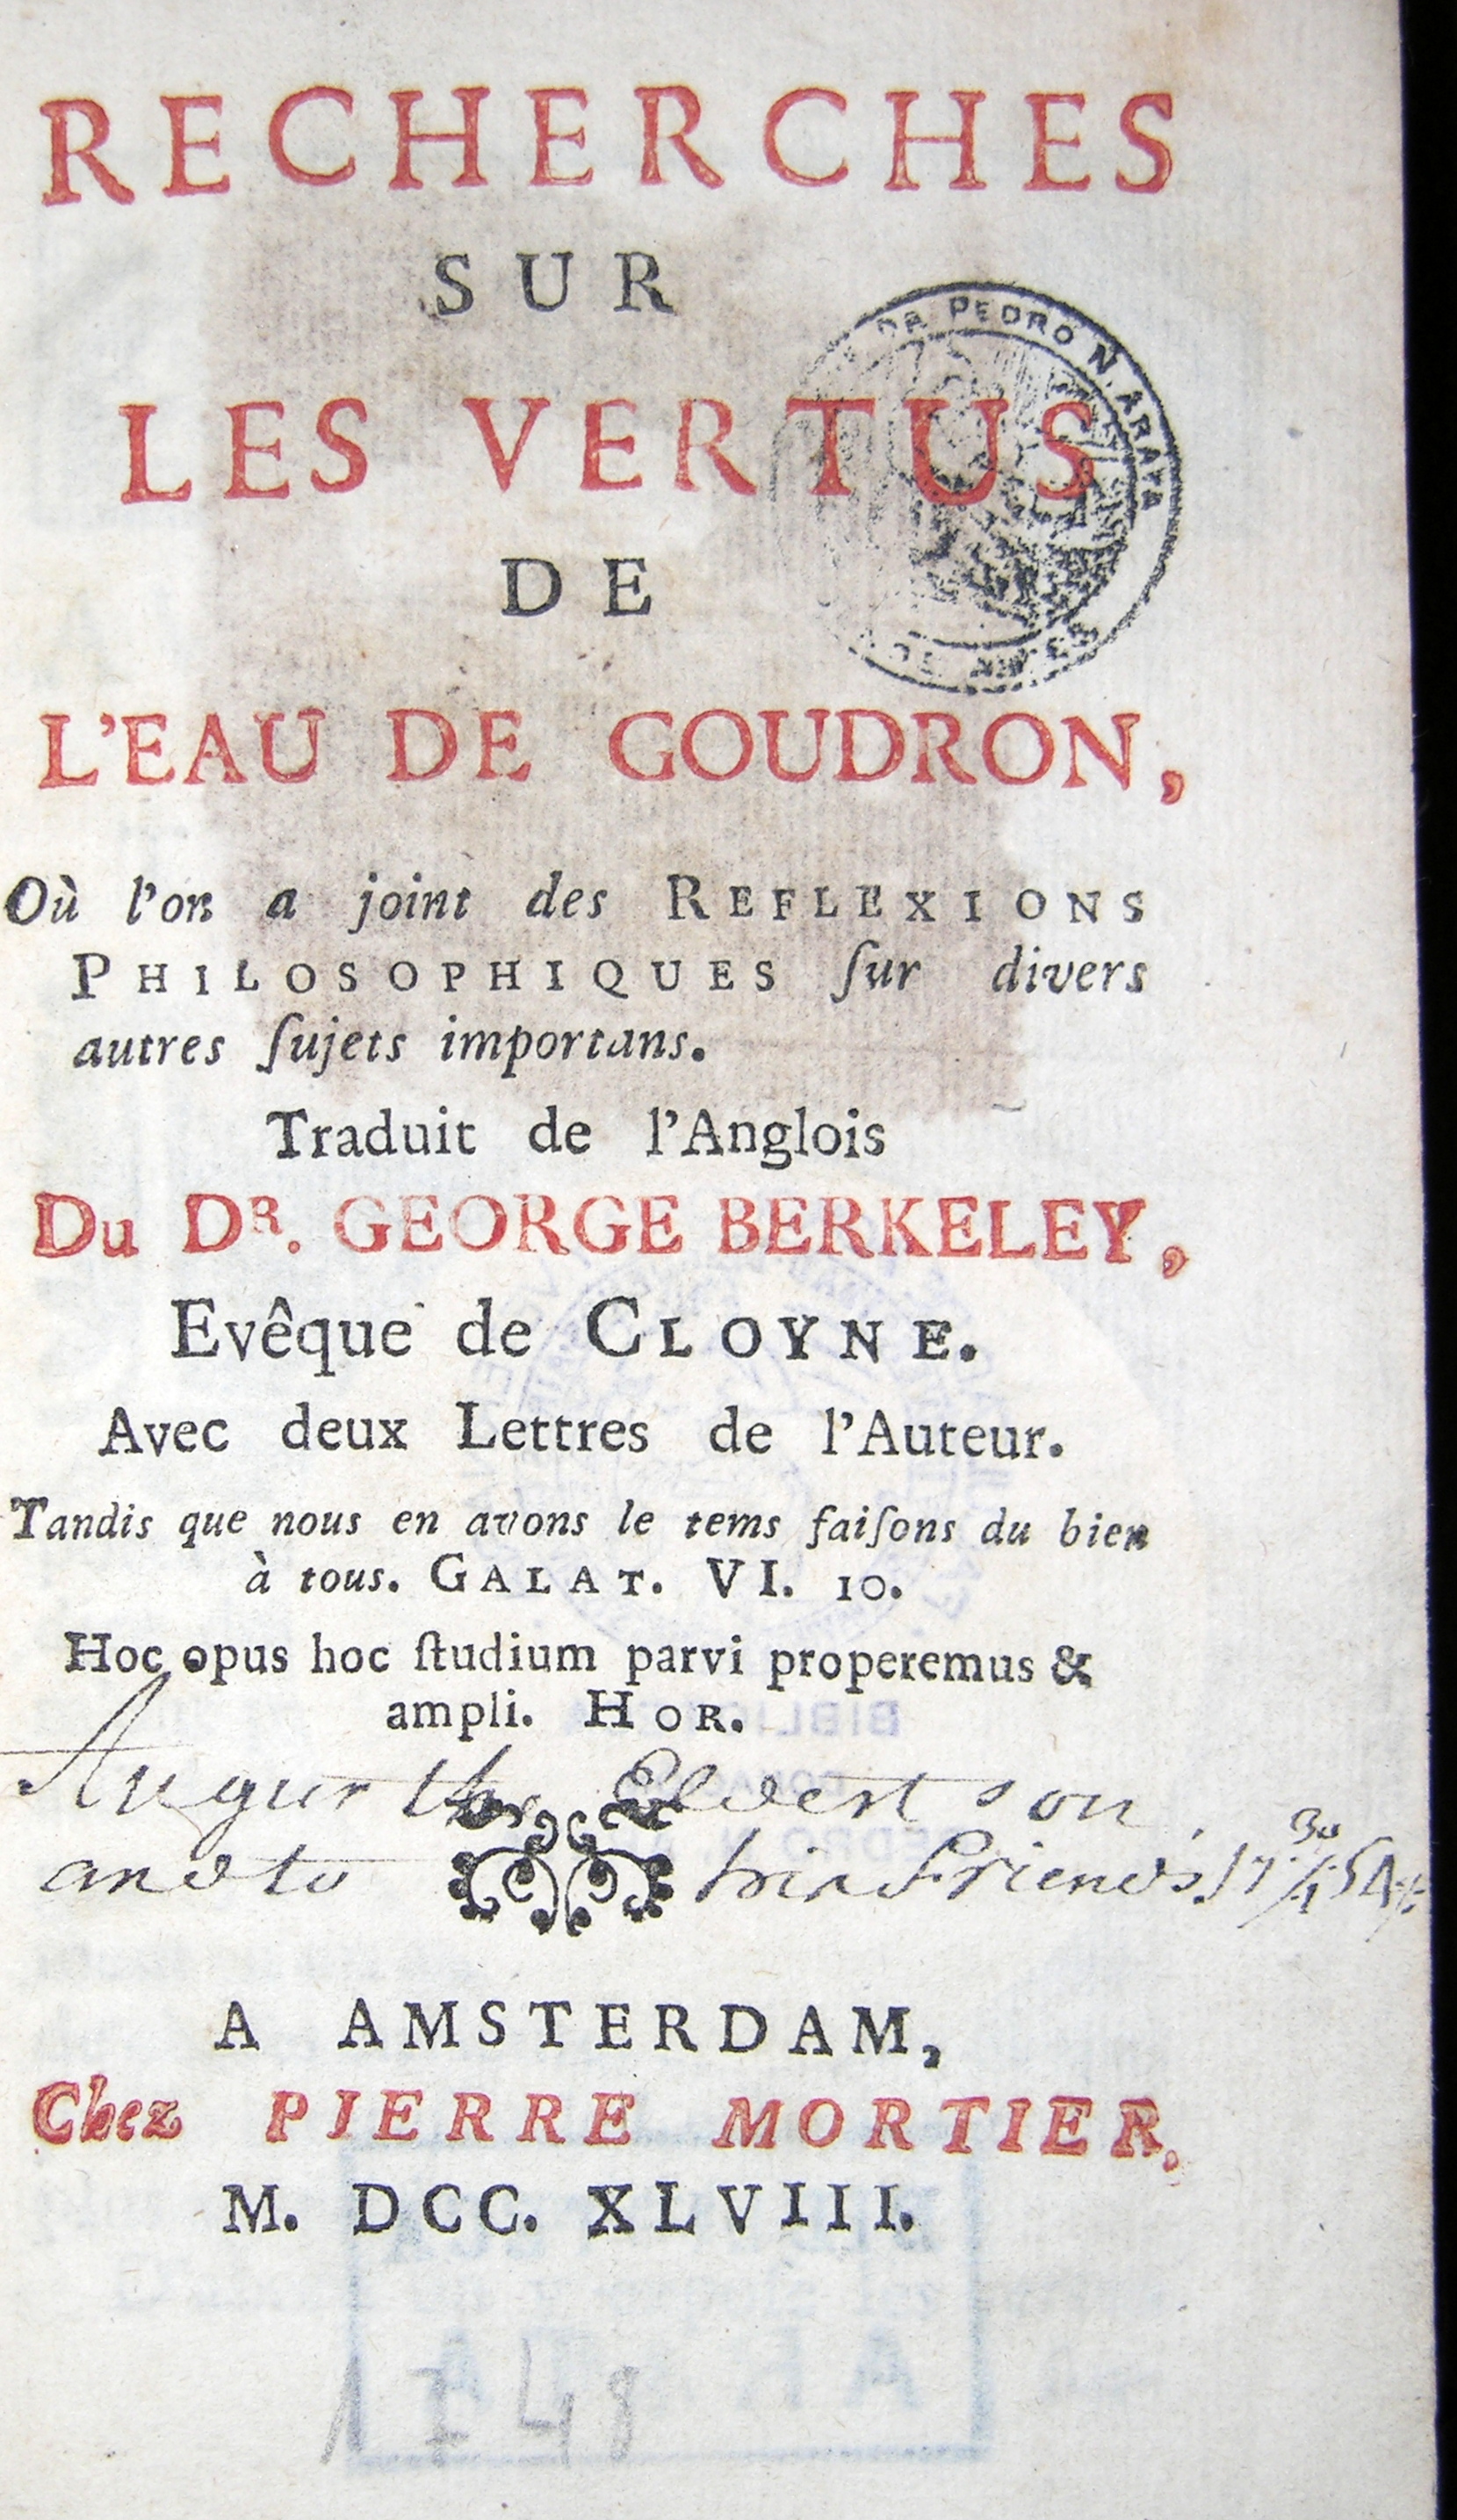 RECHERCHES
SUR
DR PEDRO N. ARAYA
LES VERTUS
DE
L'EAU DE GOUDRON,
Où l'on a joint des REFLEXIONS
PHILOSOPHIQUES ſur divers
autres ſujets importans.
Traduit de l'Anglois
Du DR. GEORGE BERKELEY,
Evêque de CLOYNE.
Avec deux Lettres de l'Auteur.
Tandis que nous en avons le tems faiſons du bien
à tous. GALAT. VI. 10.
Hoc opus hoc ſtudium parvi properemus &
ampli. HOR.
Elvertson
and to his Friends
A AMSTERDAM,
Chez PIERRE MORTIER.
M. DCC. XLVIII.
1748